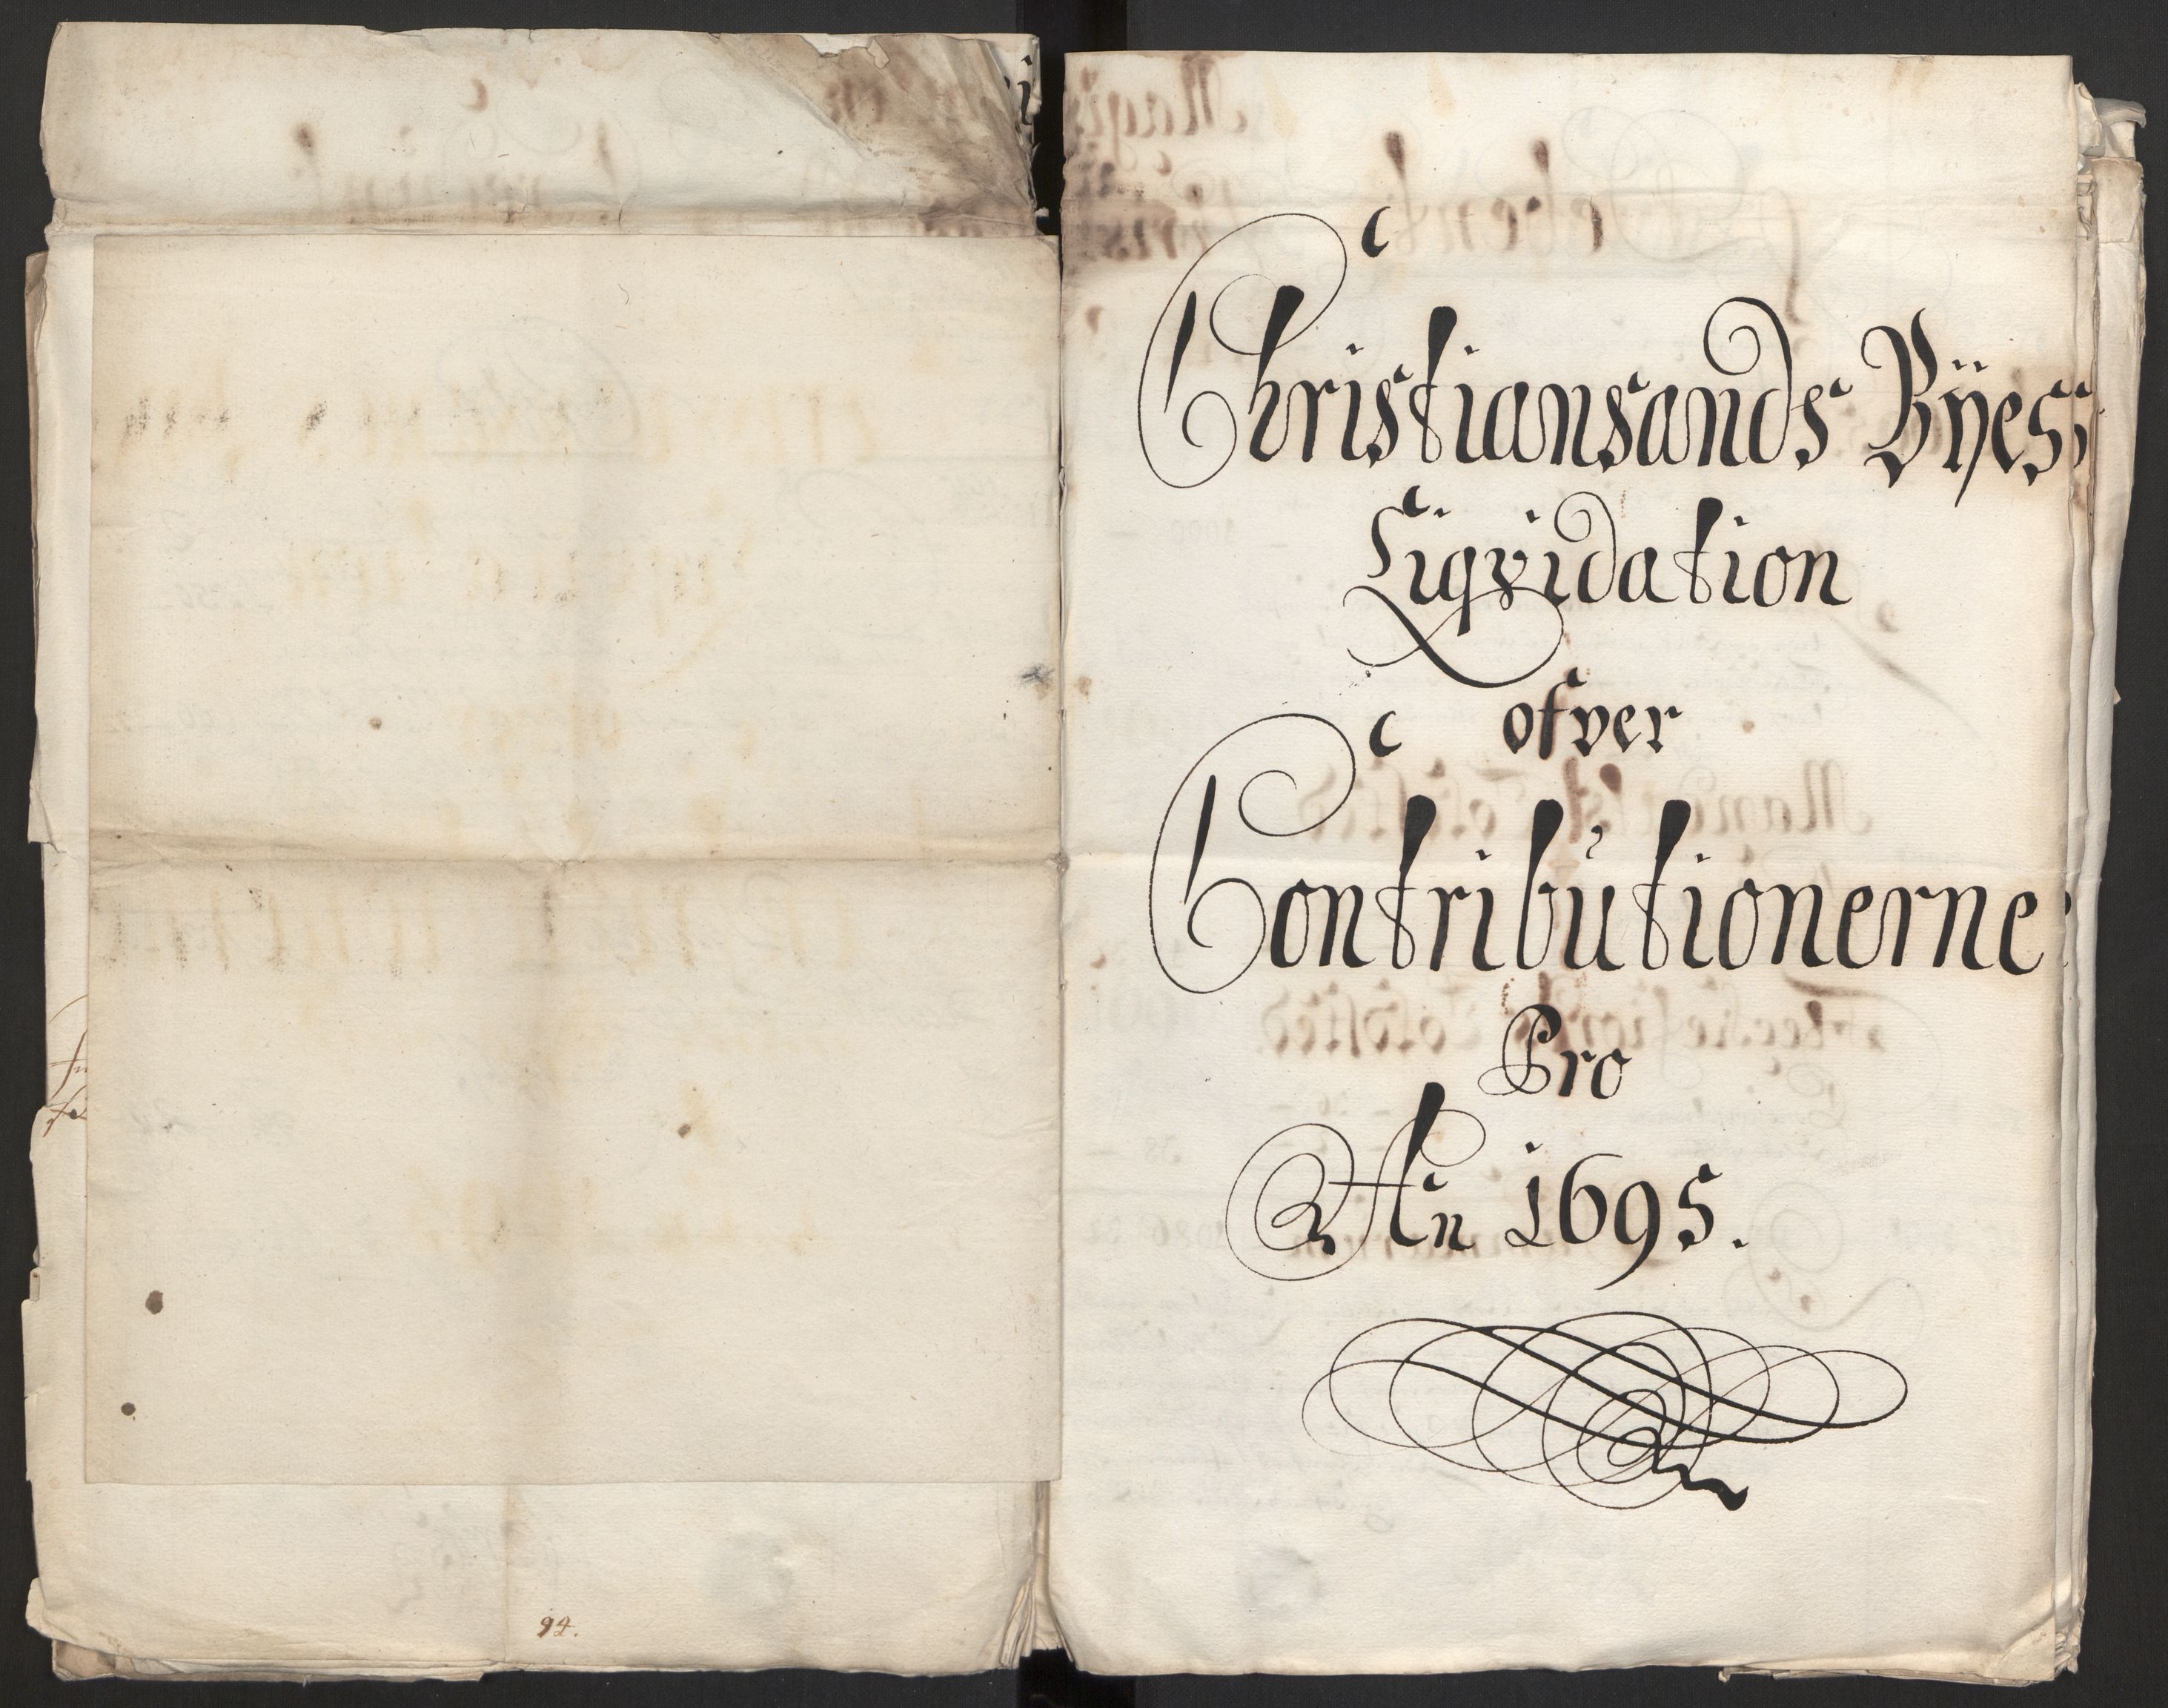 94.
Christiansands Bÿess
Liqvidation
ofver
Contribūtionerne
Pro
An 1695.